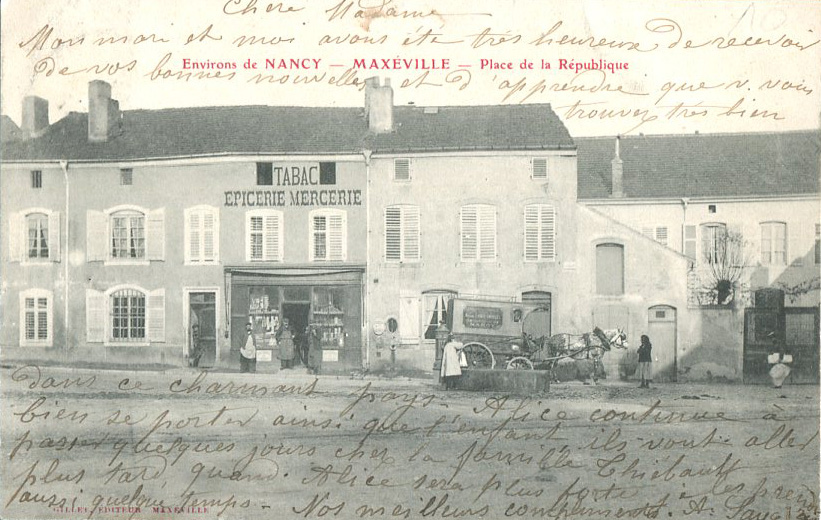 Chère Madame
Mon mari et moi avons été très heureuse de recevoir
Environs de NANCY — MAXÉVILLE — Place de la République
de vos bonnes nouvelles et d'apprendre que v. vous
trouvez très bien
TABAC
EPICERIE MERCERIE
dans ce charmant pays. Alice continue à
bien se porter ainsi que l'enfant, ils vont aller
passer quelques jours chez la famille Thiébault
plus tard, quand Alice sera plus forte et les prendre
aussi quelque temps. Nos meilleurs compliments. A.
GILLET, EDITEUR MAXÉVILLE